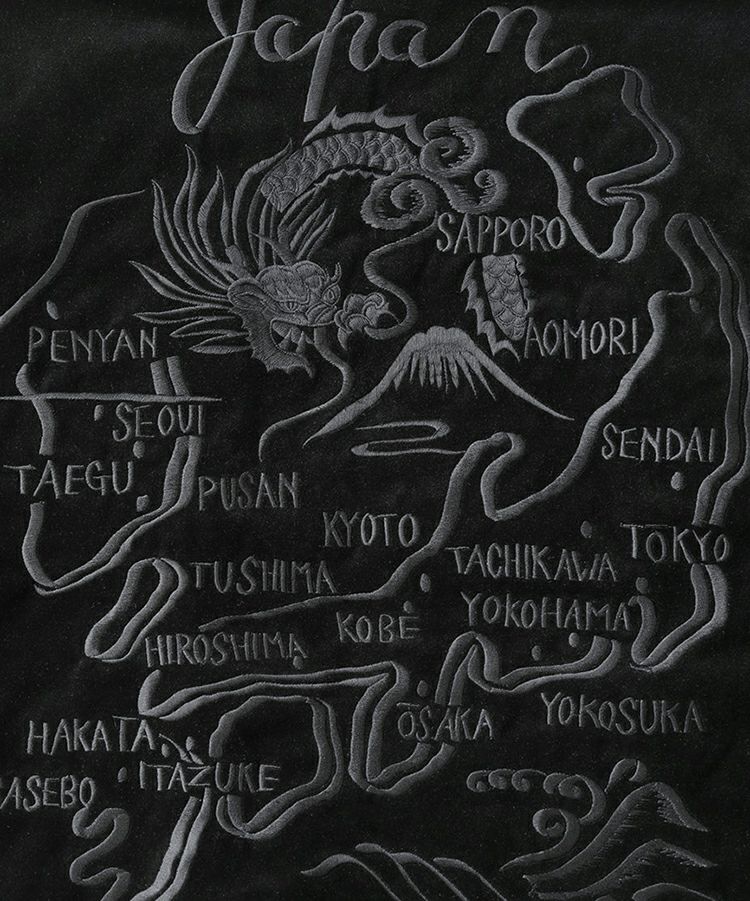 Japan
SAPPORO
PENYAN
AOMORI
SEOUI
SENDAI
TAEGU
PUSAN
KYOTO
TACHIKAWA
TOKYO
TUSHIMA
YOKOHAMA
KOBE
HIROSHIMA
OSAKA
YOKOSUKA
HAKATA
ITAZUKE
ASEBO